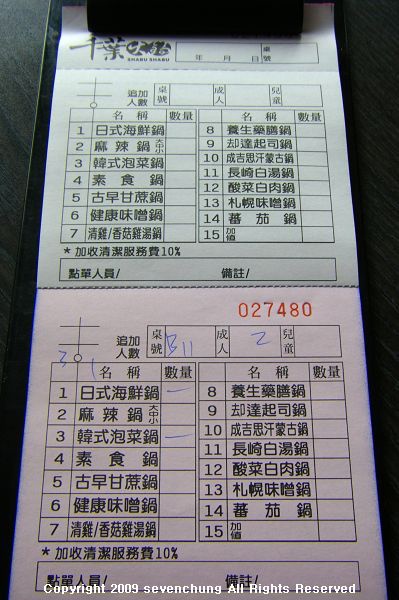 千葉火鍋
SHABU SHABU
年 月 日 桌號
追加人數 桌號 成人 兒童
名稱 數量 名稱 數量
1 日式海鮮鍋 8 養生藥膳鍋
2 麻辣鍋 大中小 9 却達起司鍋
3 韓式泡菜鍋 10 成吉思汗蒙古鍋
4 素食鍋 11 長崎白湯鍋
5 古早甘蔗鍋 12 酸菜白肉鍋
6 健康味噌鍋 13 札幌味噌鍋
7 清雞/香菇雞湯鍋 14 蕃茄鍋
15 加值
* 加收清潔服務費10%
點單人員/ 備註/
027480
追加人數 桌號 B11 成人 2 兒童
3 1
名稱 數量 名稱 數量
1 日式海鮮鍋 一 8 養生藥膳鍋
2 麻辣鍋 大中小 9 却達起司鍋
3 韓式泡菜鍋 一 10 成吉思汗蒙古鍋
4 素食鍋 11 長崎白湯鍋
5 古早甘蔗鍋 12 酸菜白肉鍋
6 健康味噌鍋 13 札幌味噌鍋
7 清雞/香菇雞湯鍋 14 蕃茄鍋
15 加值
* 加收清潔服務費10%
點單人員/ 備註/
Copyright 2009 sevenchung All Rights Reserved